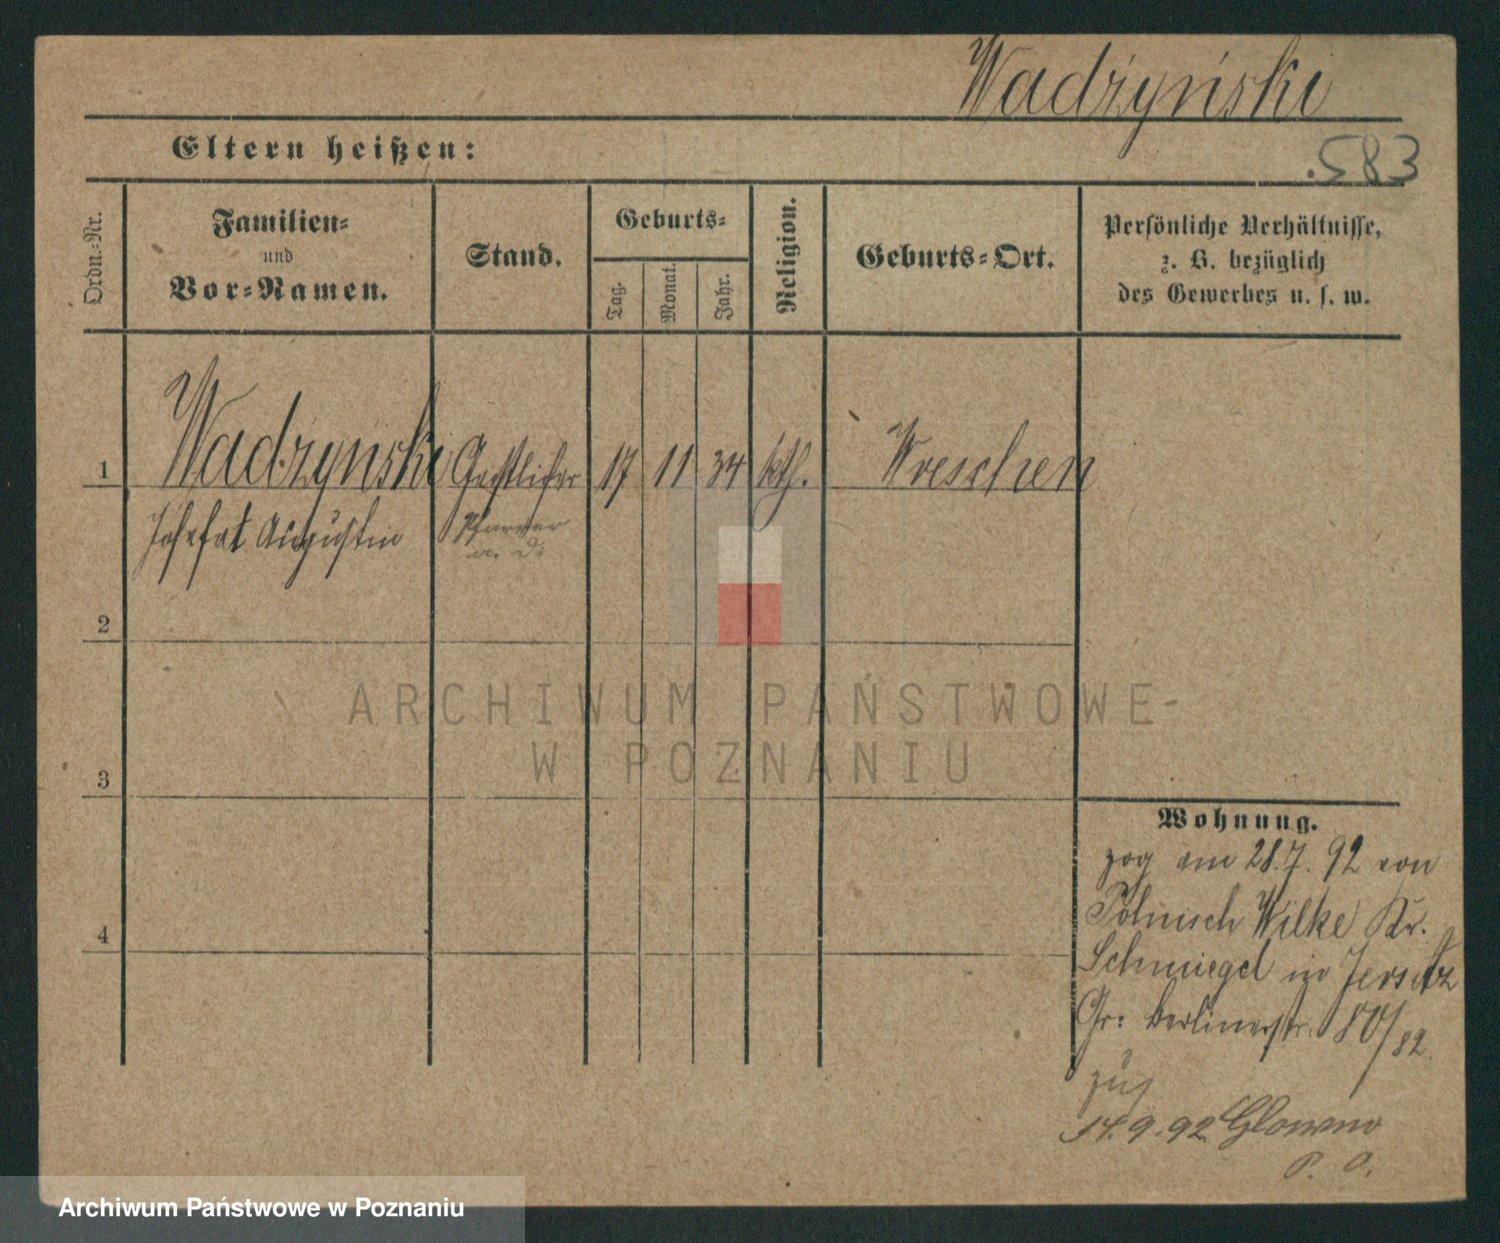 Wadżyński
583
Eltern heißen:
Ordn.-Nr.
Familien-
und
Vor-Namen.
Stand.
Geburts-
Tag.
Monat.
Jahr.
Religion.
Geburts-Ort.
Persönliche Verhältnisse,
z. B. bezüglich
des Gewerbes u. s. w.
1 Wadżyński Geistlicher 17 11 34 kth. Wreschen
Josefat Augustin Pfarrer
a. D.
2
ARCHIWUM PAŃSTWOWE
W POZNANIU
3
Wohnung.
zog am 28.7.92 von
Polnisch Wilke Kr.
4
Schmiegel in Jersitz
Gr: Berlinerstr. 80/82.
zug
14.9.92 Glowno
P. O.
Archiwum Państwowe w Poznaniu